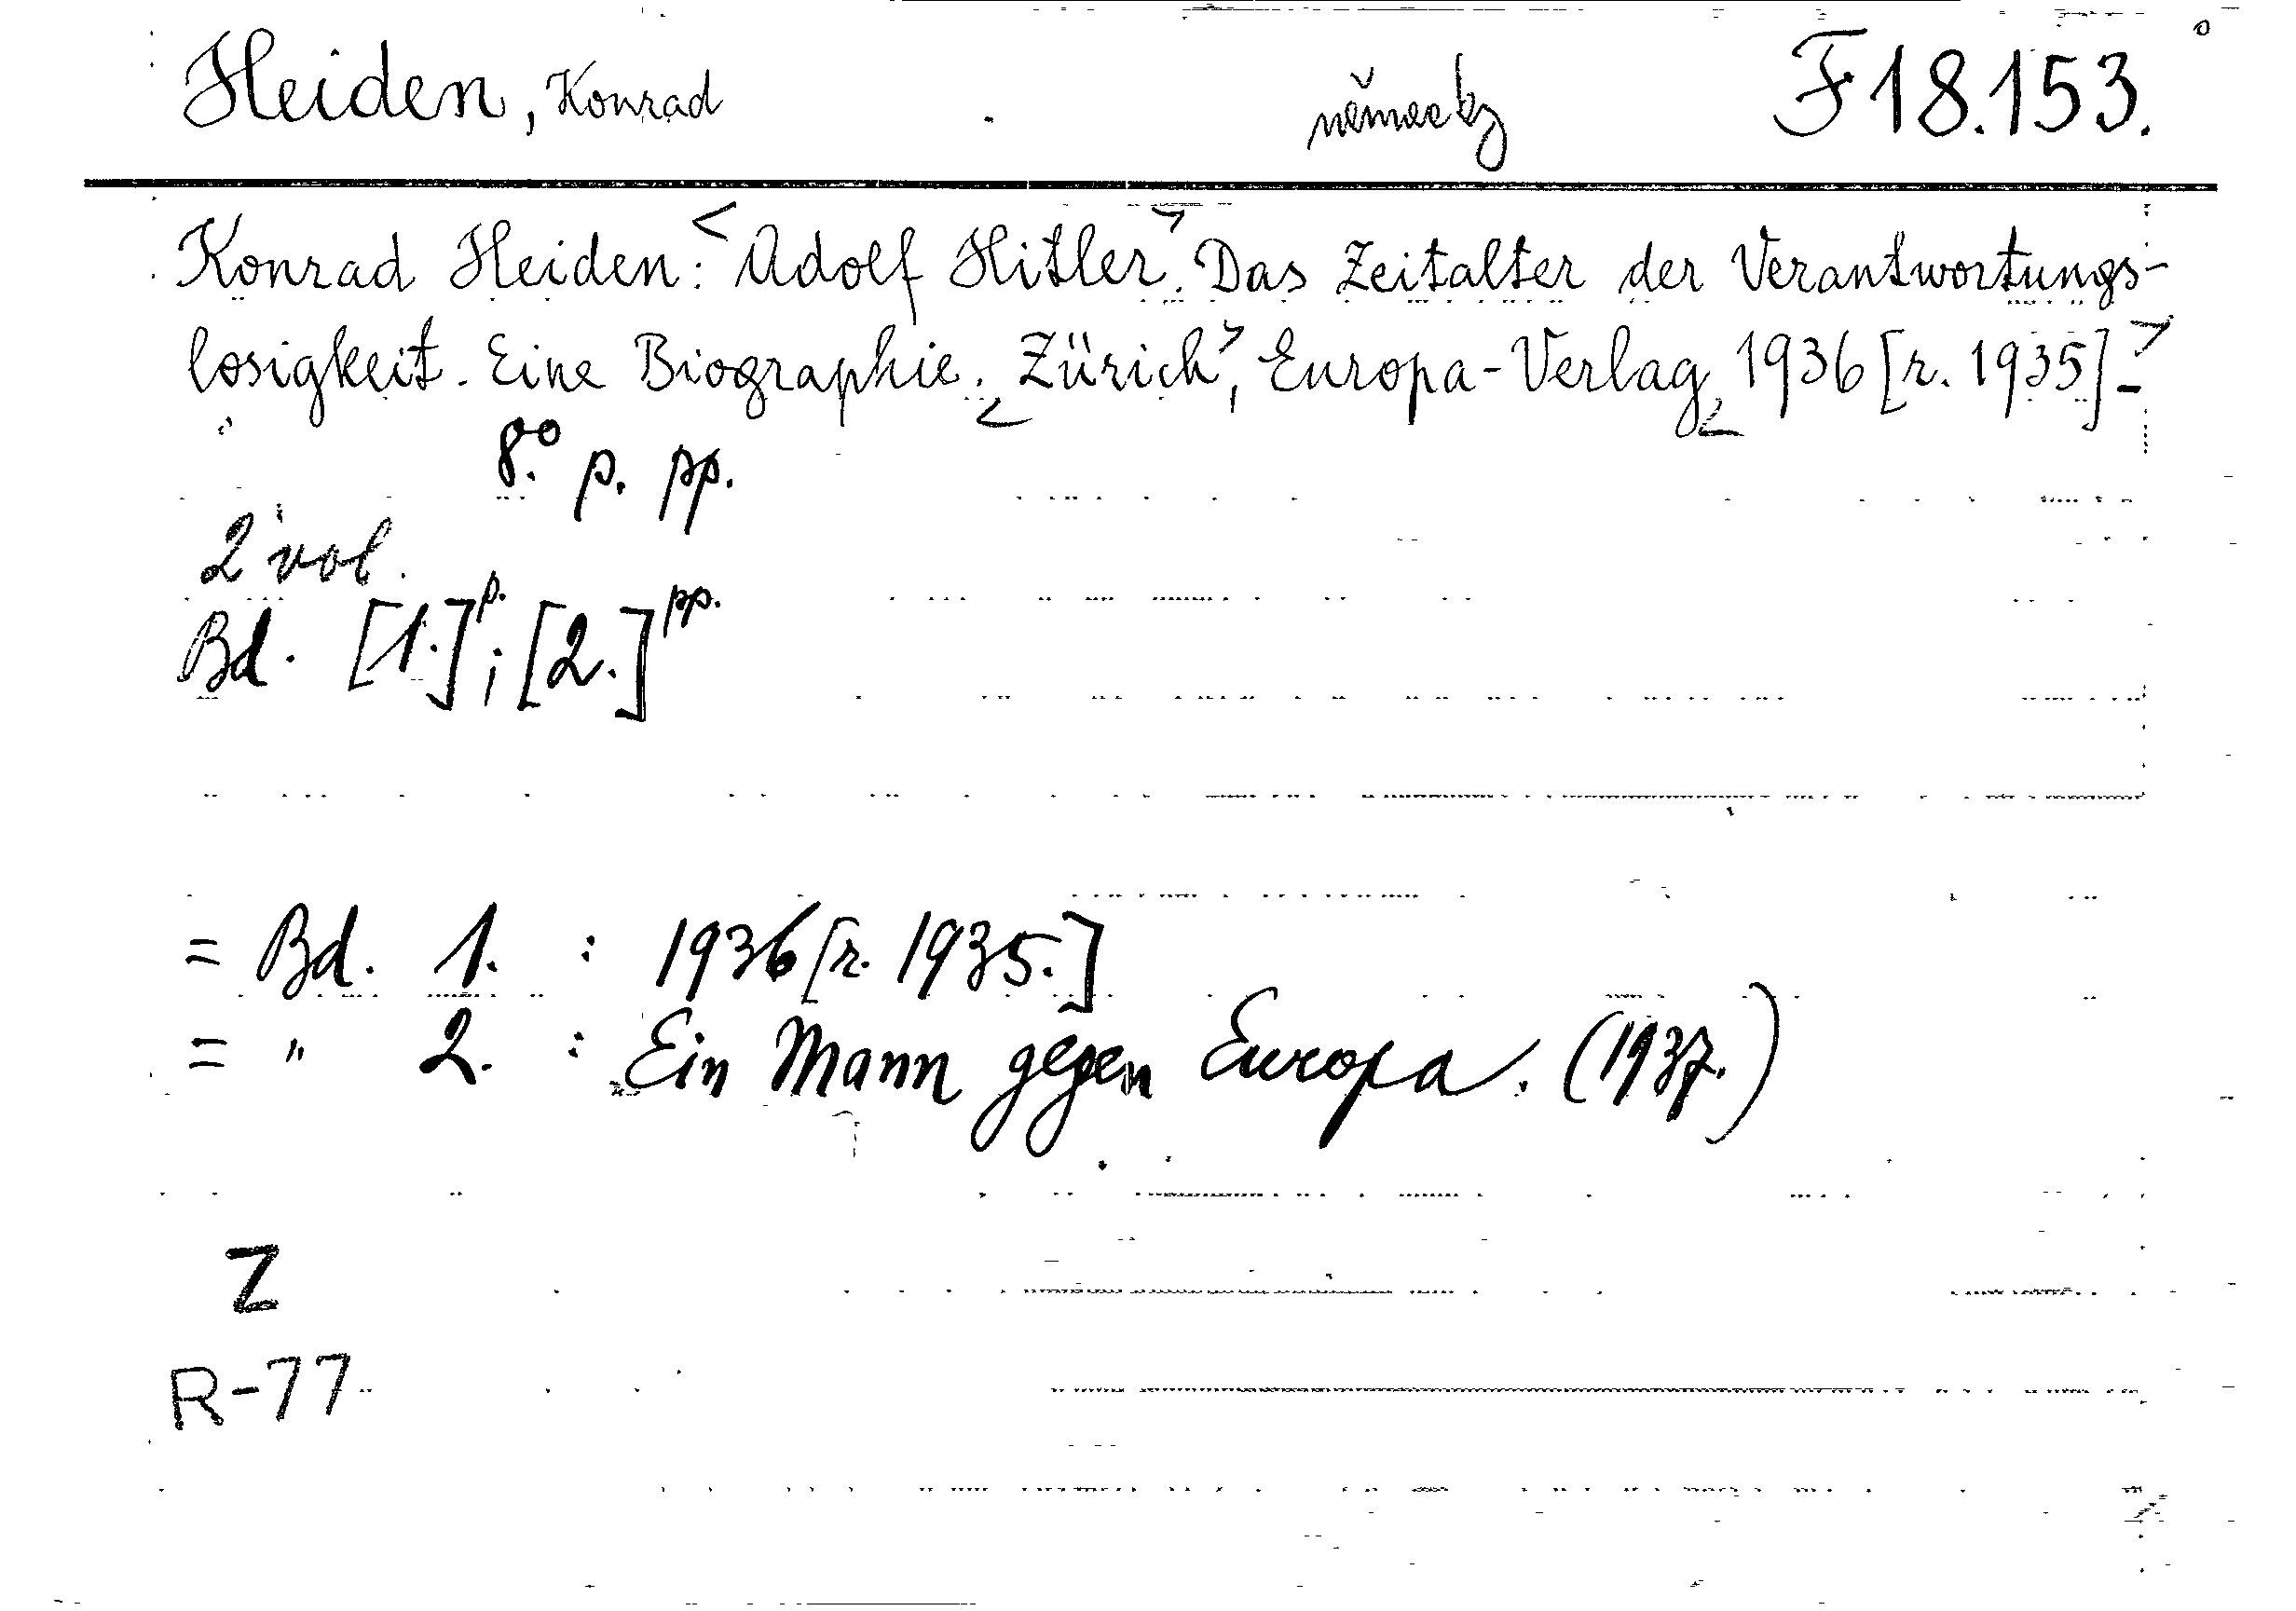 Heiden, Konrad německy F 18.153.
Konrad Heiden: <Adolf Hitler>. Das Zeitalter der Verantwortungs-
losigkeit. Eine Biographie. <Zürich>, Europa-Verlag, <1936 [r. 1935] - >
8.° p. pp.
2 vol.
Bd. [1.] p.; [2.] pp.
= Bd. 1. : 1936 [r. 1935.]
= " 2. : Ein Mann gegen Europa. (1937.)
Z
R-77